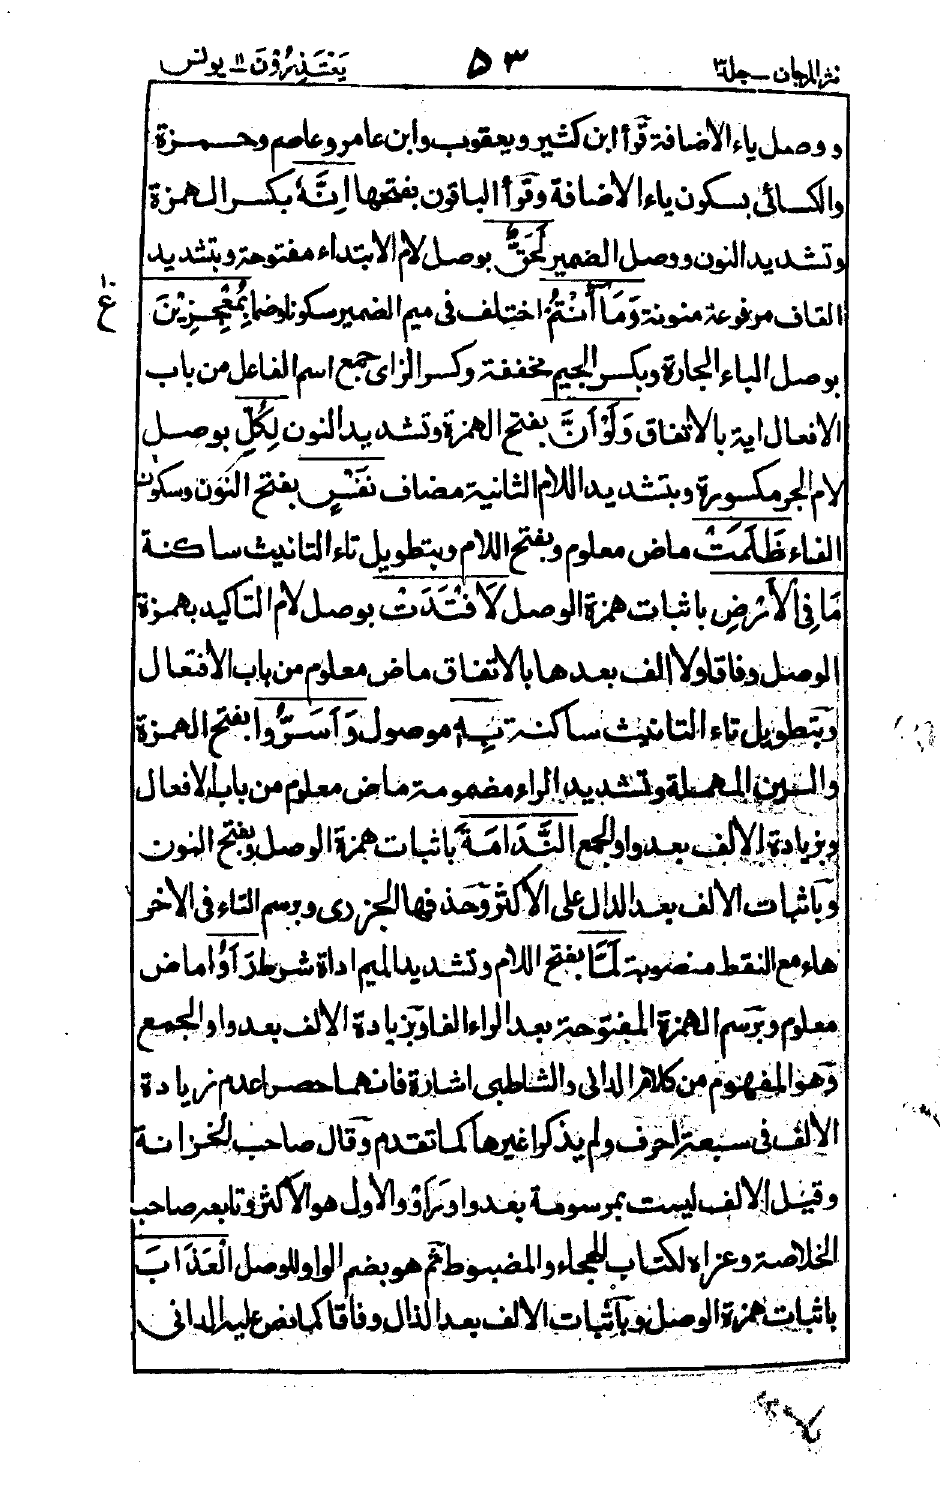 نثر المرجان – جلد ۳
۵۳
يَعْتَذِرُوْنَ ۱۱ – يونس
ووصل ياء الاضافة قرأ ابن كثير ويعقوب وابن عامر وعاصم وحمزة
والكسائى بسكون ياء الاضافة وقرأ الباقون بفتحها اِنَّهٗ بكسر الهمزة
وتشديد النون ووصل الضمير لَحَقٌّ بوصل لام الابتداء مفتوحة وبتشديد
القاف مرفوعة منونة وَمَآ اَنْتُمْ اختلف فى ميم الضمير سكونا وضما بِمُعْجِزِيْنَ
۱۰
ع
بوصل الباء الجارة وبكسر الجيم مخففة وكسر الزاى جمع اسم الفاعل من باب
الافعال اية بالاتفاق وَلَوْ اَنَّ بفتح الهمزة وتشديد النون لِكُلِّ بوصل
لام الجر مكسورة وبتشديد اللام الثانية مضاف نَفْسٍ بفتح النون وسكون
الفاء ظَلَمَتْ ماض معلوم وبفتح اللام وبتطويل تاء التانيث ساكنة
مَا فِى الْاَرْضِ باثبات همزة الوصل لَافْتَدَتْ بوصل لام التاكيد بهمزة
الوصل وفاقا ولا الف بعدها بالاتفاق ماض معلوم من باب الافتعال
وبتطويل تاء التانيث ساكنة بِهٖ موصول وَاَسَرُّوا بفتح الهمزة
والسين المهملة وتشديد الراء مضمومة ماض معلوم من باب الافعال
وبزيادة الالف بعد واو الجمع النَّدَامَةَ باثبات همزة الوصل وبفتح النون
وباثبات الالف بعد الدال على الاكثر وحذفها الجزرى وبرسم التاء فى الاخر
هاء مع النقط منصوبة لَمَّا بفتح اللام وتشديد الميم اداة شرط رَاَوُا ماض
معلوم وبرسم الهمزة المفتوحة بعد الراء الفا وبزيادة الالف بعد واو الجمع
وهو المفهوم من كلام الدانى والشاطبى اشارة فانهما حصرا عدم زيادة
الالف فى سبعة احرف ولم يذكرا غيرها كما تقدم وقال صاحب الخزانة
وقيل الالف ليست بمرسومة بعد واو رَاَوْ والاول هو الاكثر وتابعه صاحب
الخلاصة وعزاه لكتاب الهجاء والمضبوط ثم هو بضم الواو للوصل الْعَذَابَ
باثبات همزة الوصل وباثبات الالف بعد الذال وفاقا كما نص عليه الدانى